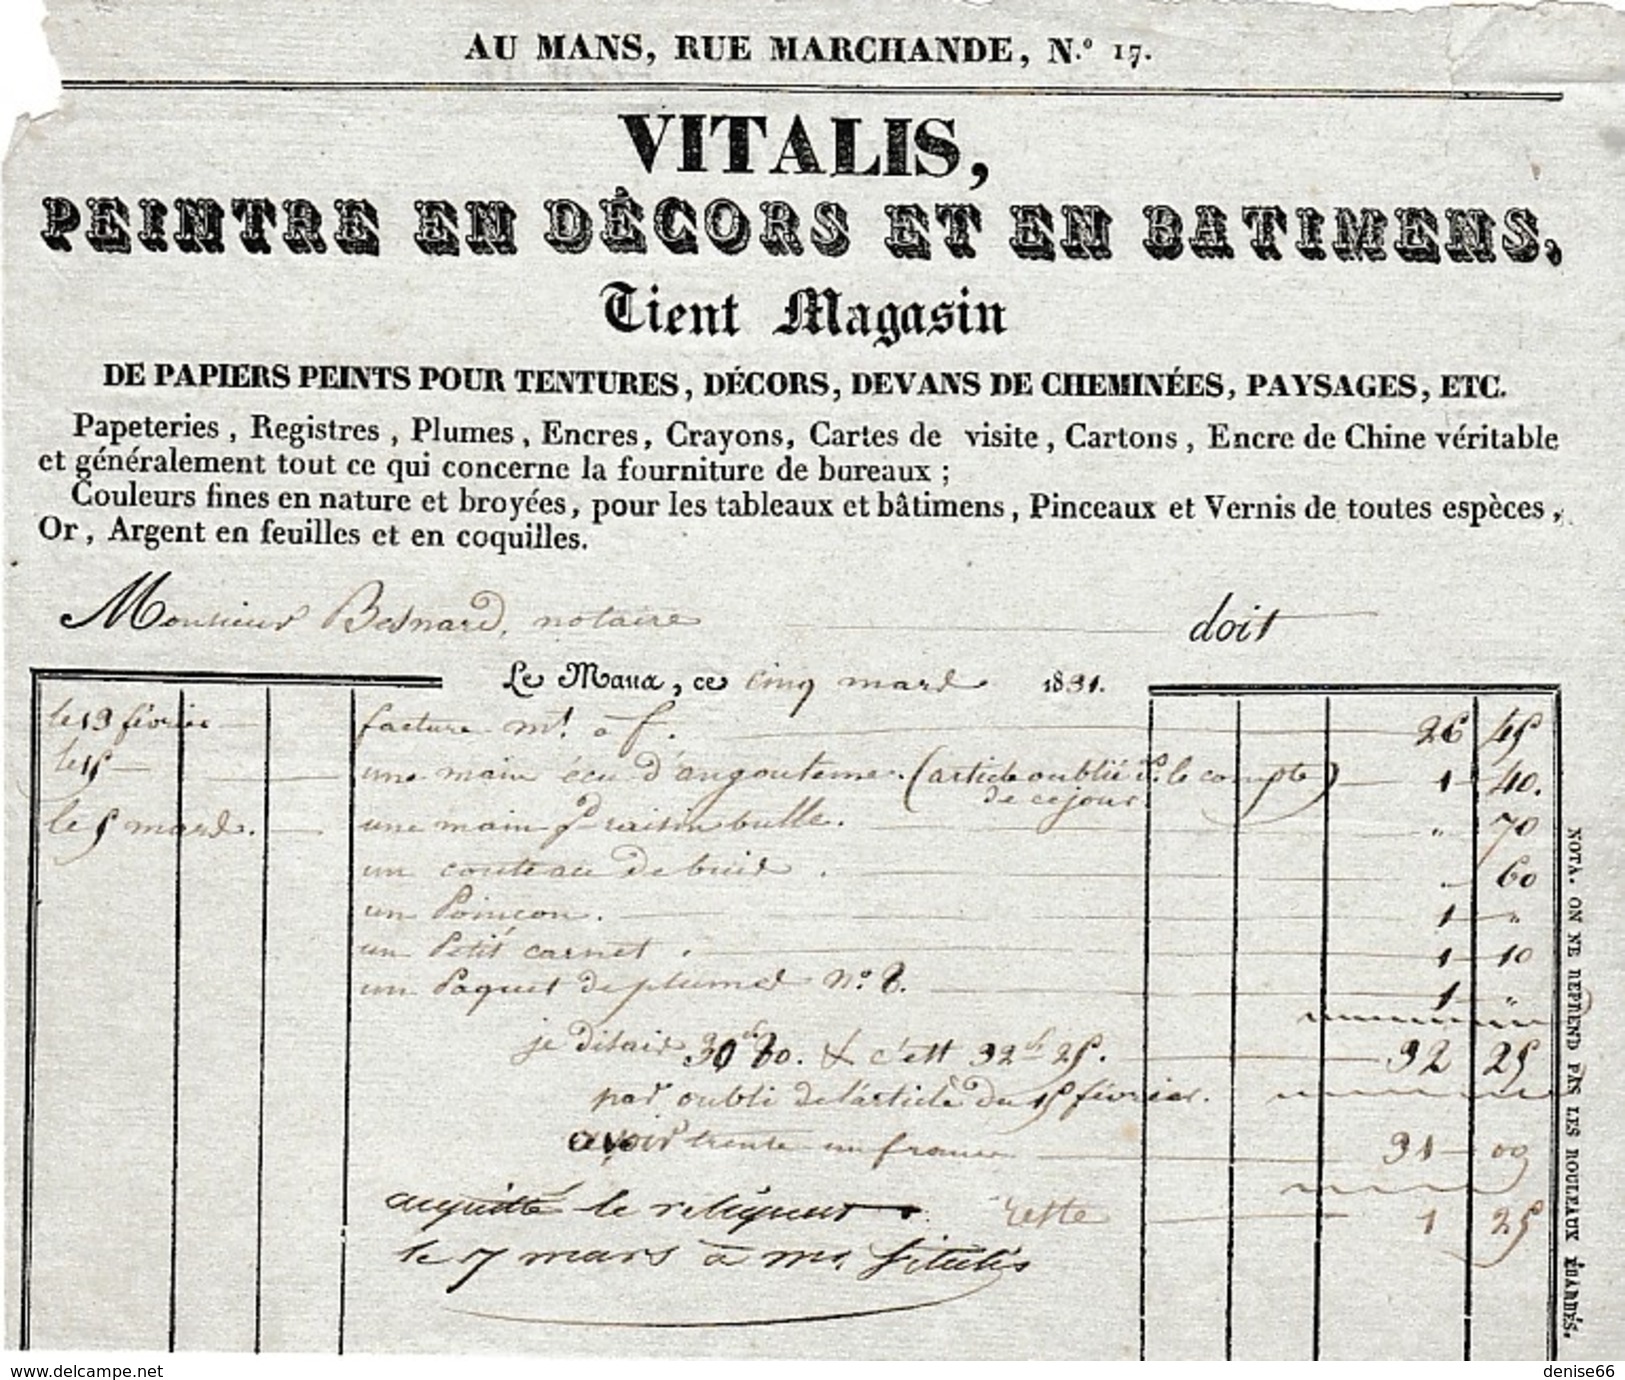 AU MANS, RUE MARCHANDE, N.º 17.
VITALIS,
PEINTRE EN DÉCORS ET EN BATIMENS,
Tient Magasin
DE PAPIERS PEINTS POUR TENTURES, DÉCORS, DEVANS DE CHEMINÉES, PAYSAGES, ETC.
Papeteries, Registres, Plumes, Encres, Crayons, Cartes de visite, Cartons, Encre de Chine véritable
et généralement tout ce qui concerne la fourniture de bureaux ;
Couleurs fines en nature et broyées, pour les tableaux et bâtimens, Pinceaux et Vernis de toutes espèces,
Or, Argent en feuilles et en coquilles.
Monsieur Besnard, notaire doit
Le Mans, ce cinq mars 1831.
le 13 février facture mt. à f. 26 45
le 15 une main écu d'angouteme. (article oublié ds. le compte) 1 40.
de ce jour
le 5 mars. une main gd raisin bulle. " 70
un couteau de buis. 60
un Poinçon. 1 "
un Petit carnet. 1 10
un Paquet de plumes Nº 8. 1 "
je disais 30 80. & c'est 32 25. 32 25
par oubli de l'article du 15 février.
avoir trente un francs 31 00
acquitté le reste 1 25
le 7 mars à mr. Vitalis
NOTA. ON NE REPREND PAS LES ROULEAUX ÉMARDÉS.
www.delcampe.net
denise66